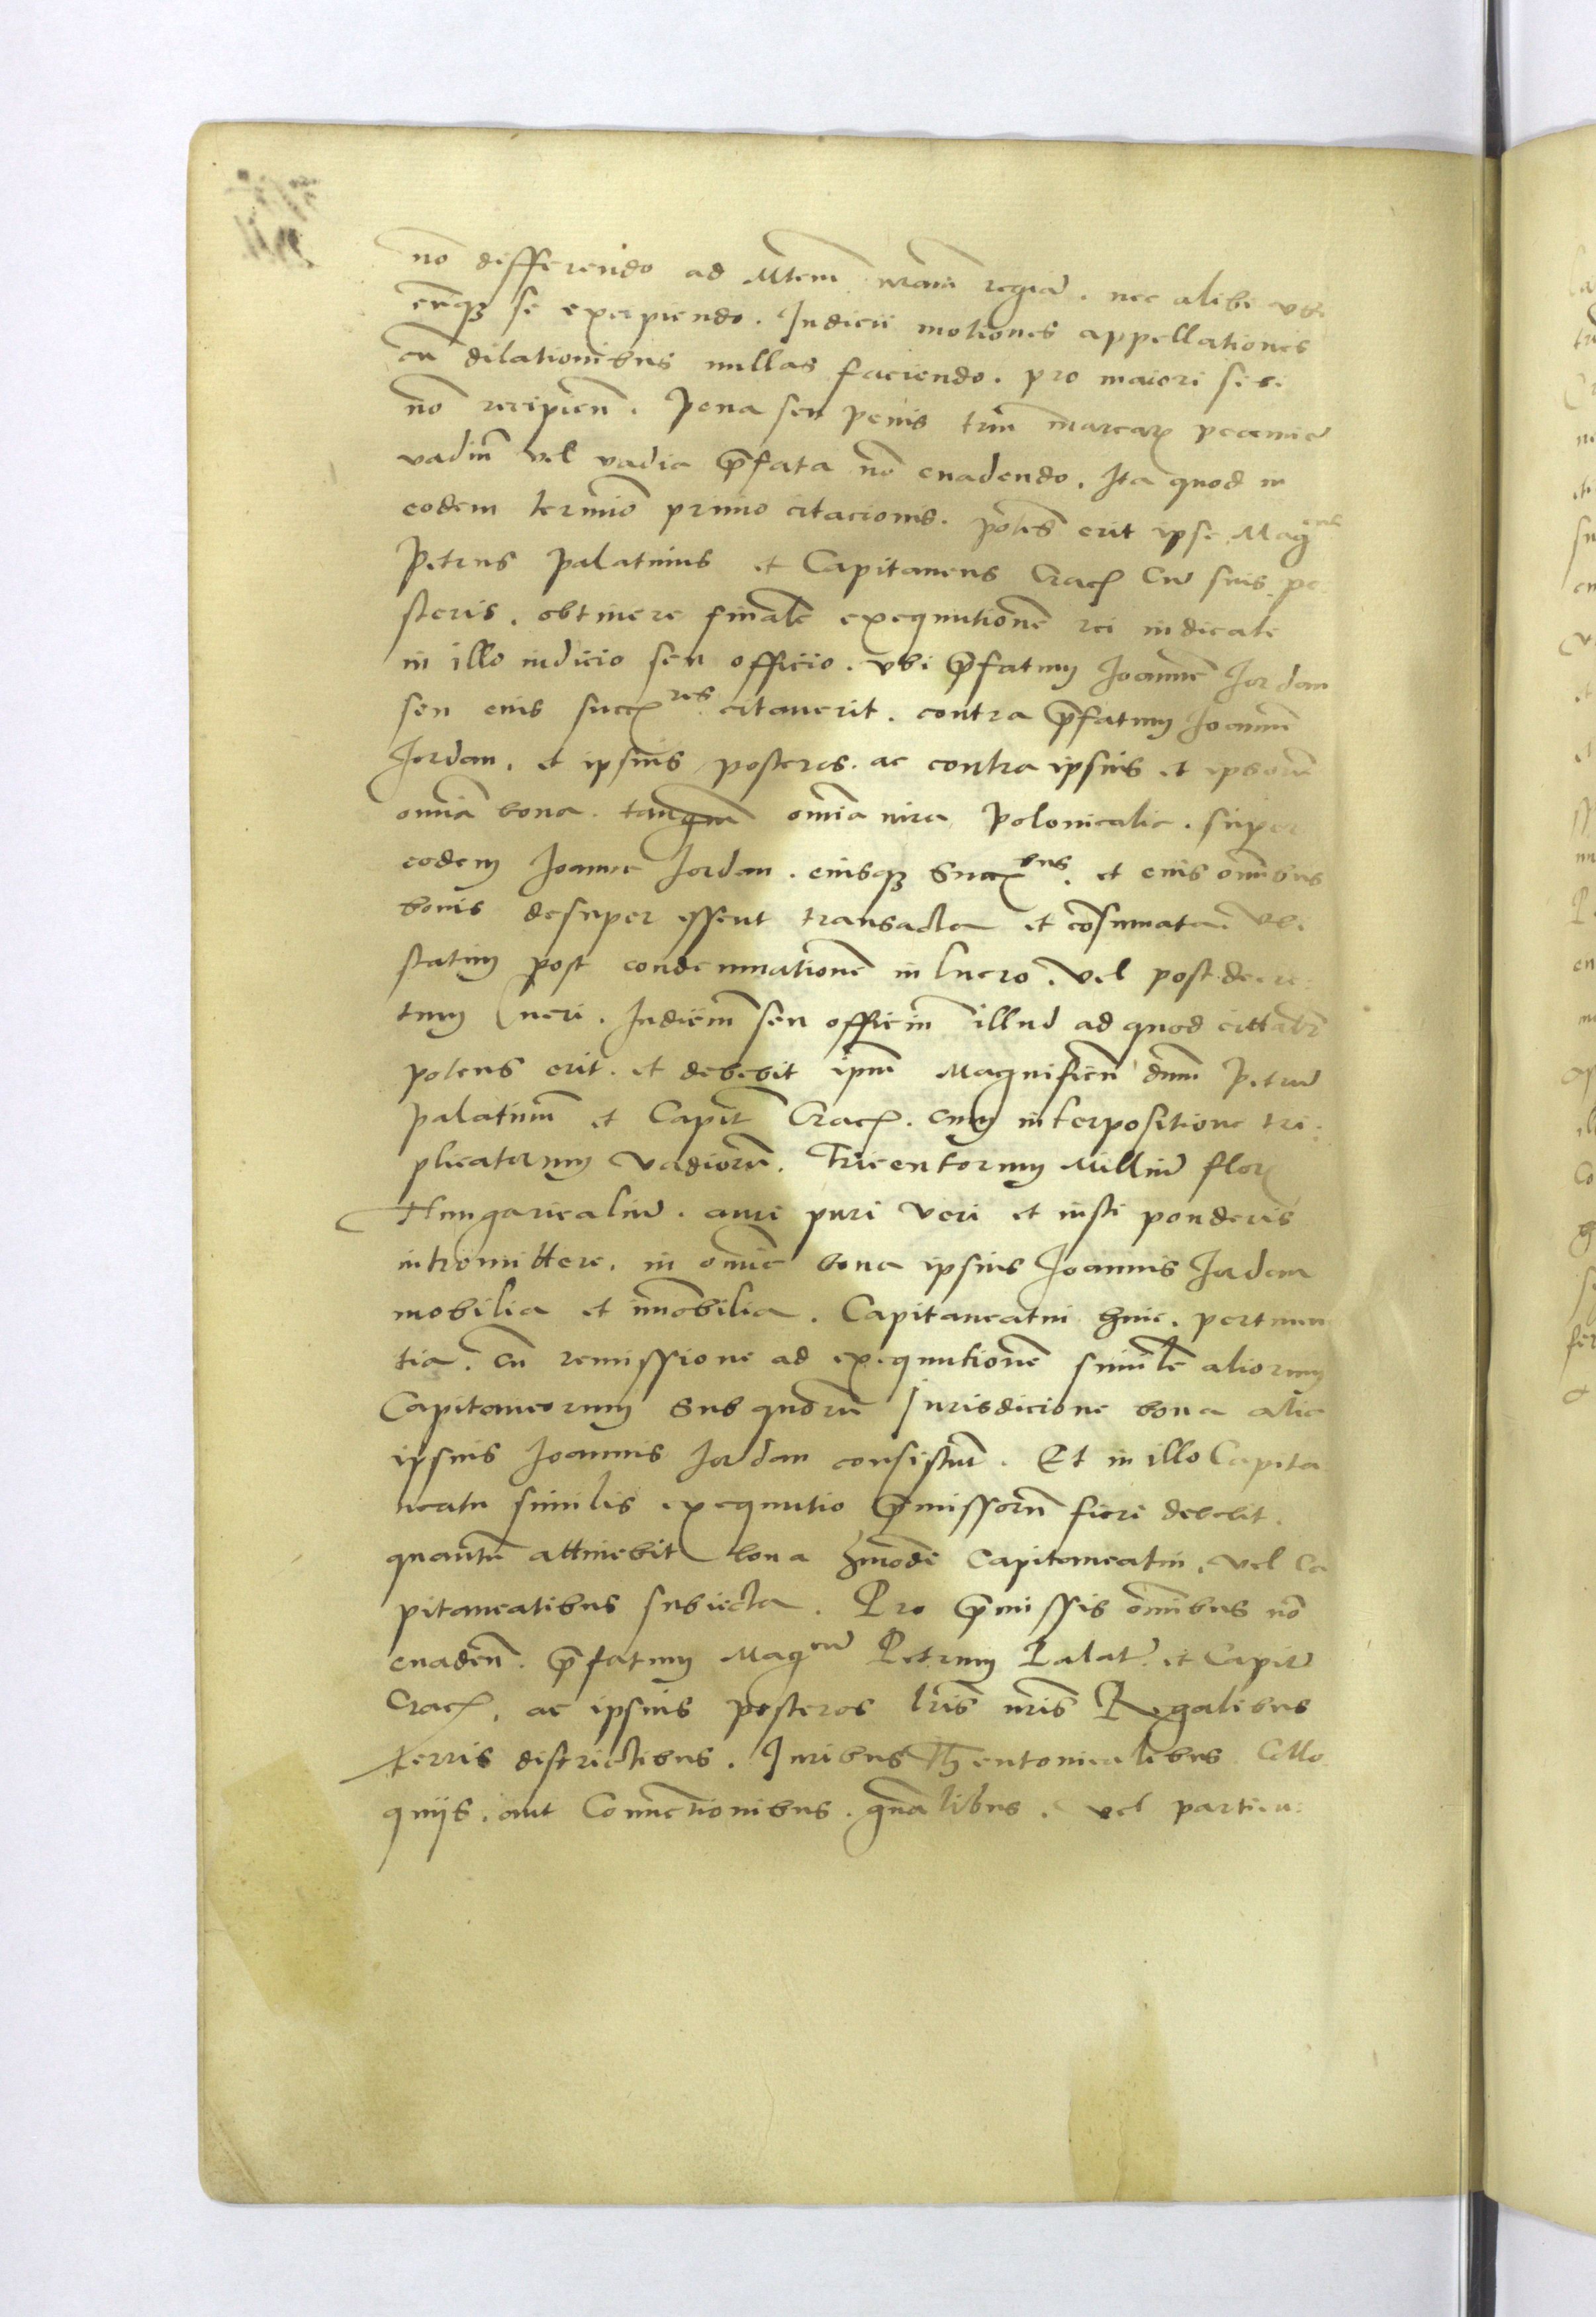 nō differendo ad Mtem nrām regiā. nec alibi vbi
cūqȝ se excipiendo. Iudicii motiones appellationes
cū dilationibus nullas faciendo. pro maiori sibi
nō recipien̄. Pena seu penis triū marcarꝝ pecunie
vadiū vel vadia p̄fata nō euadendo. Ita quod in
eodem termīo primo citacionis. potēs erit ipse Mag^cus
Petrus palatinus et Capitaneus Crac̄ Cū suis po
steris. obtinere finalē exequutionē rei iudicate
in illo iudicio seu officio. vbi p̄fatum Joannē Jordan
seu eius succ^res citauerit. contra p̄fatum Joannē
Jordan. et ipsius posteros. ac contra ipsius et ipsorū
omīa bona. tanquā omīa iura polonicalia. super
eodem Joanne Jordan. eiusqȝ Succ^bus. et eius omībus
bonis desuper essent transacta et cōsumata. Vbi
statim post condemnationē in lucro. vel post decre:
tum lucri. Iudiciū seu officiū illud ad quod cittabr̄
potens erit. et debebit ipm̄ Magnificū dnūm Petrū
palatinū et Capit̄ Crac̄. cum interpositione tri:
plicatorum vadiorū. Tricentorum Milliū flor̄
Hungaricaliū. auri puri veri et iusti ponderis
intromittere. in omīa bona ipsius Joannis Jordan
mobilia et imōbilia. Capitaneatui huic. pertinen
tia. cū remissione ad exequutionē similē aliorum
Capitaneorum Sub quorū Iurisdicione bona alia
ipsius Joannis Jordan consistūt. Et in illo Capita
neatu similis exequutio p̄missorū fieri debebit.
quantū attinebit bona hmōdi Capitaneatui. vel Ca
pitaneatibus subiecta. Pro p̄missis omībus nō
euaden̄. p̄fatum Mag^cū Petrum Palat̄. et Capit̄
Crac̄. ac ipsius posteros lris̄ nris̄ Regalibus
terris districtibus. Iuribus Theutonicalibus Collo
quijs. aut Conuētionibus. gnālibus. vel particu: